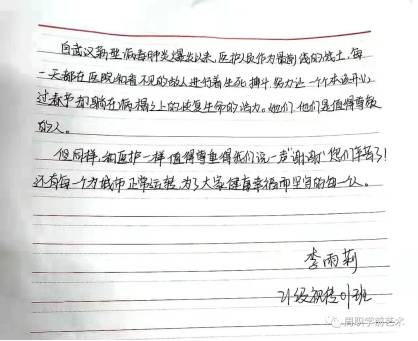 自武汉新型病毒肺炎爆发以来,医护人员作为最前线的战士,每
一天都在医院和看不见的敌人进行着生死搏斗,努力让一个个本该开心
过春节却躺在病榻上的恢复生命的活力。她们,他们是值得尊敬
的人。
但同样,和医护一样值得尊重得我们说一声“谢谢”您们辛苦了!
还有每一个为城市正常运转,为了大家健康幸福而坚守的每一个人。
李雨莉
21级视传01班
周职学前艺术